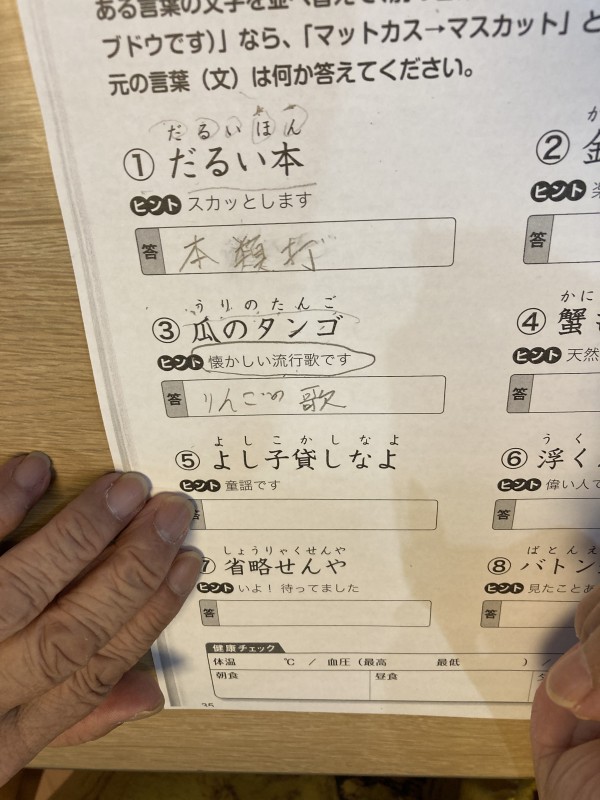 ある言葉の文字を並べ替えて
ブドウです)」なら、「マットカス→マスカット」と
元の言葉(文)は何か答えてください。
だるいほん
① だるい本
ヒント スカッとします
答 本類打
うりのたんご
③ 瓜のタンゴ
ヒント 懐かしい流行歌です
答 りんごの歌
よしこかしなよ
⑤ よし子貸しなよ
ヒント 童謡です
答
しょうりゃくせんや
⑦ 省略せんや
ヒント いよ! 待ってました
答
②
ヒント
答
かに
④ 蟹
ヒント 天然
答
うく
⑥ 浮く
ヒント 偉い人で
答
ばとんえ
⑧ バトン
ヒント 見たことあ
答
健康チェック
体温 ℃ / 血圧(最高 最低 ) /
朝食 昼食
35